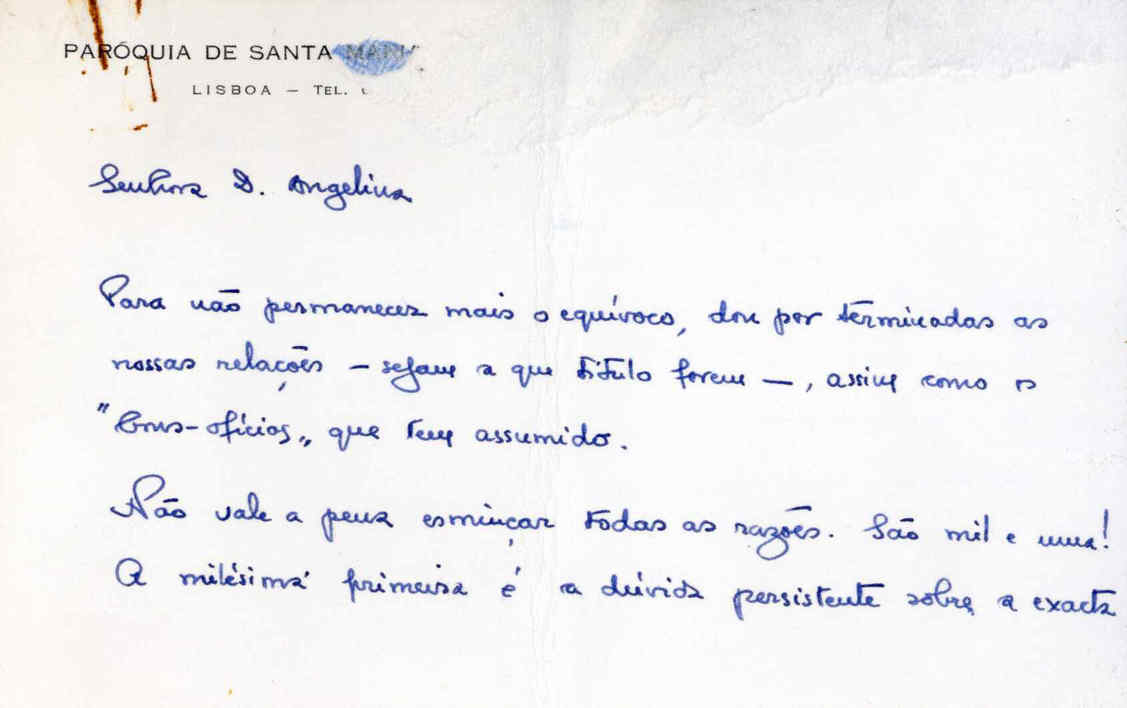 PARÓQUIA DE SANTA
LISBOA – TEL.
Senhora D. Angelina
Para não permanecer mais o equívoco, dou por terminadas as
nossas relações – sejam a que título forem –, assim como os
"bons-ofícios„ que tem assumido.
Não vale a pena esmiuçar todas as razões. São mil e uma!
A milésima primeira é a dúvida persistente sobre a exacta